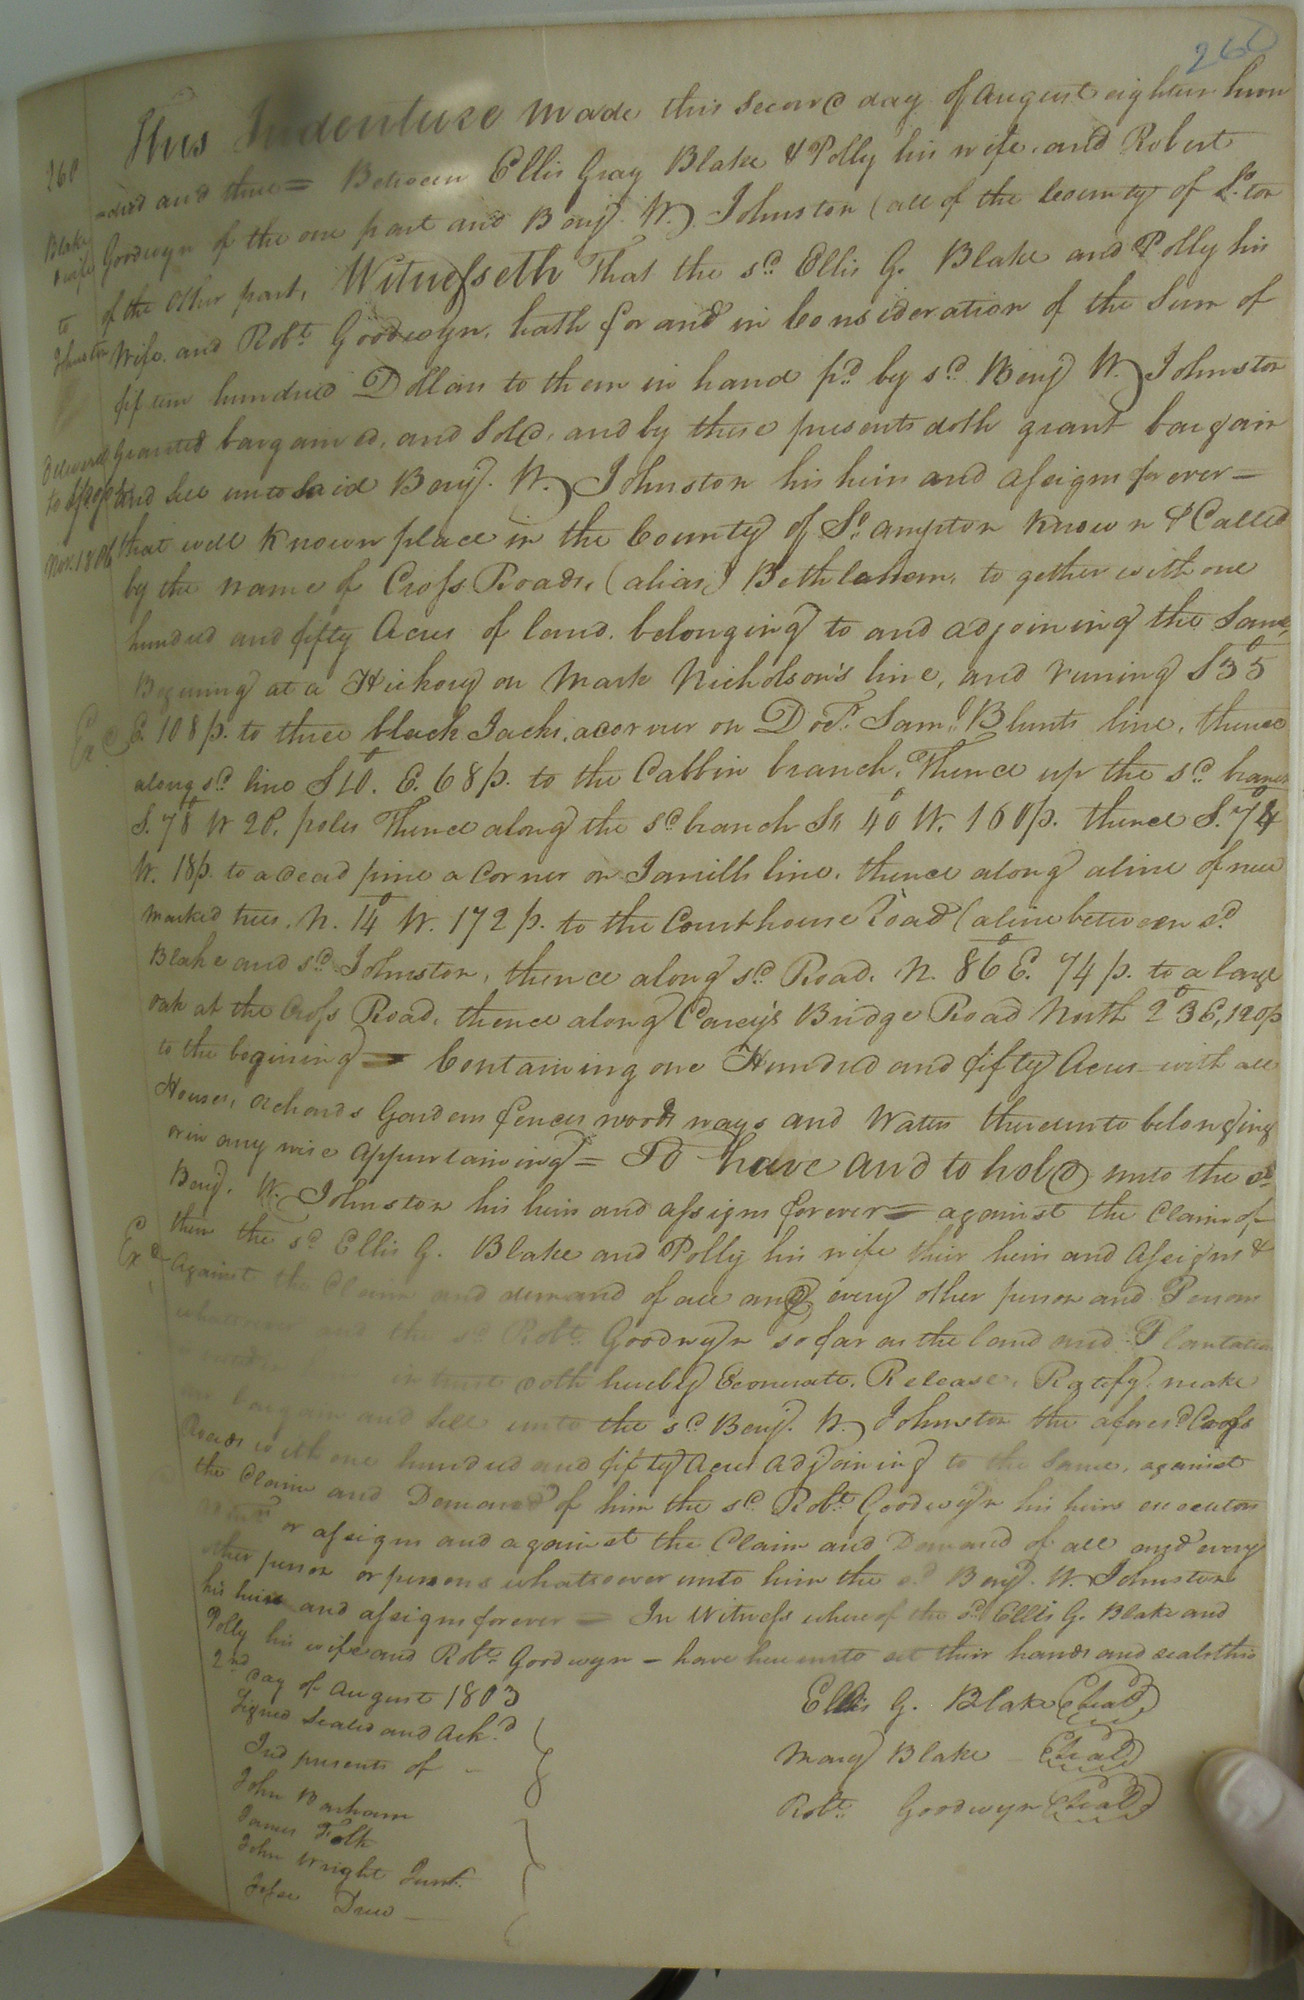 260
This Indenture made this second day of August eighteen hun
=dred and three = Between Ellis Gray Blake & Polly his wife, and Robert
Goodwyn of the one part and Benj. W. Johnston (all of the County of So. ton
of the other part, Witnesseth That the sd. Ellis G. Blake and Polly his
Wife, and Robt. Goodwyn, hath for and in Consideration of the Sum of
fifteen hundred Dollars to them in hand pd. by sd. Benj. W. Johnston
granted bargained, and Sold, and by these presents doth grant bargain
and sell unto said Benj. W. Johnston his heirs and assigns forever =
that well known place in the County of So. ampton Known & Called
by the name of Cross Roads, (alias) Bethlahem, to gether with one
hundred and fifty Acres of land, belonging to and adjoining the Same,
Begining at a Hickory on Mark Nicholson's line, and runing S 35°
E. 108 p. to three black Jacks, a corner on Doctr. Saml. Blunts line, thence
along sd. line S 10°. E. 68 p. to the Cabbin branch, Thence up the sd. branch
S. 78° W 20, poles Thence along the sd branch So 40° W. 160 p. thence S. 74°
W. 18 p. to a dead pine a Corner on Jarrills line, thence along a line of new
marked trees, N. 14° W. 172 p. to the Courthouse Road (a line between sd
Blake and sd. Johnston, thence along sd. Road. N. 86° E. 74 p. to a large
oak at the Cross Road, thence along Carey's Bridge Road North 23° E, 120 p
to the begining = Containing one Hundred and fifty Acres with all
Houses, orchards Gardens fences woods ways and Waters thereunto belonging
or in any wise appurtaining = To have and to hold unto the sd
Benj. W. Johnston his heirs and assigns forever = against the Claim of
them the sd. Ellis G. Blake and Polly his wife their heirs and Assigns &
against the Claim and demand of all and every other person and Persons
whatsoever and the sd. Robt. Goodwyn so far as the land and Plantation
in trust doth hereby Exonerate, Release, Ratify, make
bargain and Sell unto the sd. Benj. W. Johnston the aforesd. Cross
Roads with one hundred and fifty Acres Adjoining to the Same, against
the Claim and Demand of him the sd. Robt. Goodwyn his heirs executors
or assigns and against the Claim and Demand of all and every
other person or persons whatsoever unto him the sd. Benj. W. Johnston
his heirs and assigns forever = In Witness whereof the sd. Ellis G. Blake and
Polly his wife and Robt. Goodwyn – have hereunto set their hands and seals this
2nd day of August 1803
Signed Sealed and Ackd.
Ind presents of –
John Barham
James Folk
John Wright Junr.
Jesse Drew –
Ellis G. Blake (Seal)
Mary Blake – (Seal)
Robt. Goodwyn (Seal)
260
Blake
& wife
to
Johnston
Delivered
to
Nov. 1806
Exd.
Exd